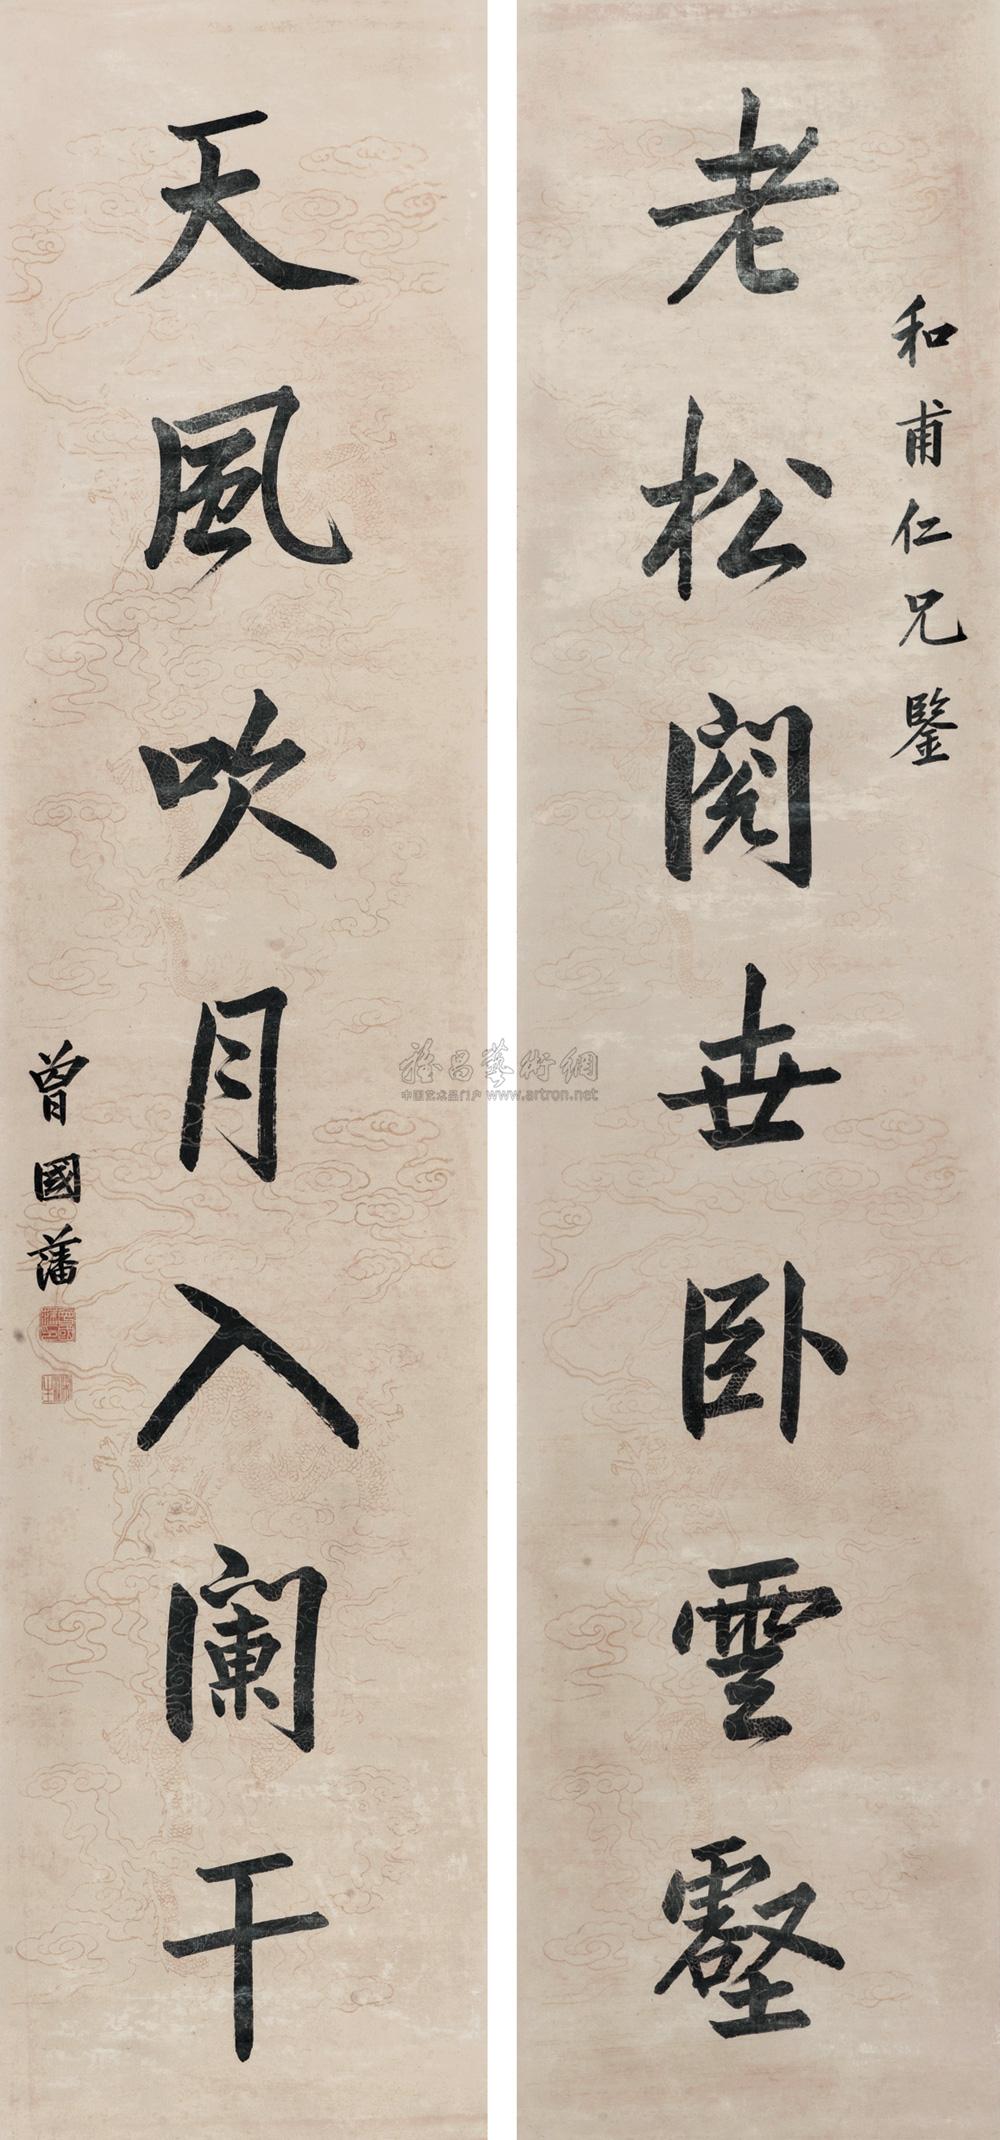 和甫仁兄鑒
老松閱世臥雲壑
天風吹月入闌干
曾國藩
雅昌藝術網
中国艺术品门户 www.artron.net